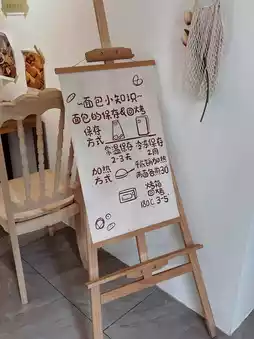 -面包小知识-
面包的保存&回烤
保存方式
常温保存 2-3天
冷冻保存 2周
加热方式
平底锅加热 两面各煎30
烤箱回烤
180℃ 3-5